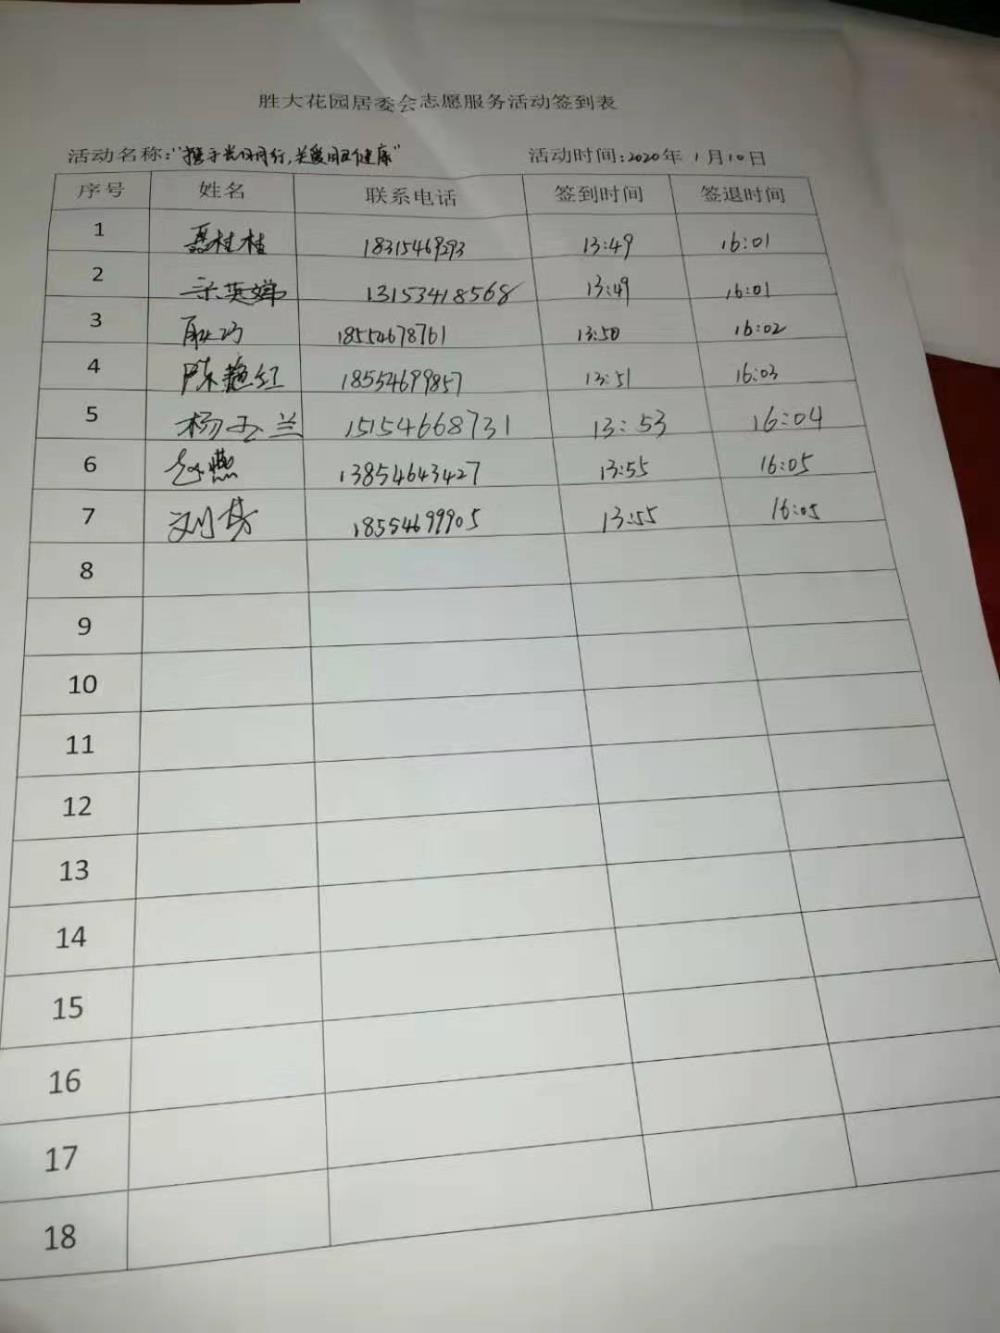 胜大花园居委会志愿服务活动签到表
活动名称:"携手共同同行,关爱眼健康" 活动时间:2020年1月10日
序号 姓名 联系电话 签到时间 签退时间
1 聂桂桂 18315469293 13:49 16:01
2 13153418568 13:49 16:01
3 耿巧 18554678761 13:50 16:02
4 陈艳红 18554699857 13:51 16:03
5 杨玉兰 15154668731 13:53 16:04
6 赵燕 13854643427 13:55 16:05
7 刘芳 18554699905 13:55 16:05
8
9
10
11
12
13
14
15
16
17
18